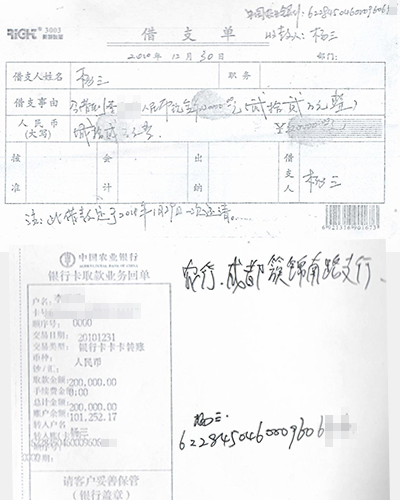 RIGHT 3003
借支单
中国农业银行: 622845046000960
收款人: 杨三
2010年12月30日
部门:
借支人姓名 杨三 职务
借支事由 人民币现金 元(贰拾贰万元整)
人民币(大写) 贰拾贰万元
核准 会计 出纳 借支人 杨三
注: 此借款定于201 年1月29日一次还清
6921316901673
中国农业银行
AGRICULTURAL BANK OF CHINA
银行卡取款业务回单
农行. 成都 锦南路支行.
户名: 李
卡号
顺序号: 0000
交易日期: 20101231
交易类型: 银行卡卡卡转账
币种: 人民币
钞/汇:
取款金额: 200,000.00
手续费金额: 0.00
总计金额: 200,000.00
账户余额: 101,252.17
转入户名: 杨三
转入账(卡)号:
622845046000960
顺序号: 0000
请客户妥善保管
(银行盖章)
杨三.
622845046000960 6